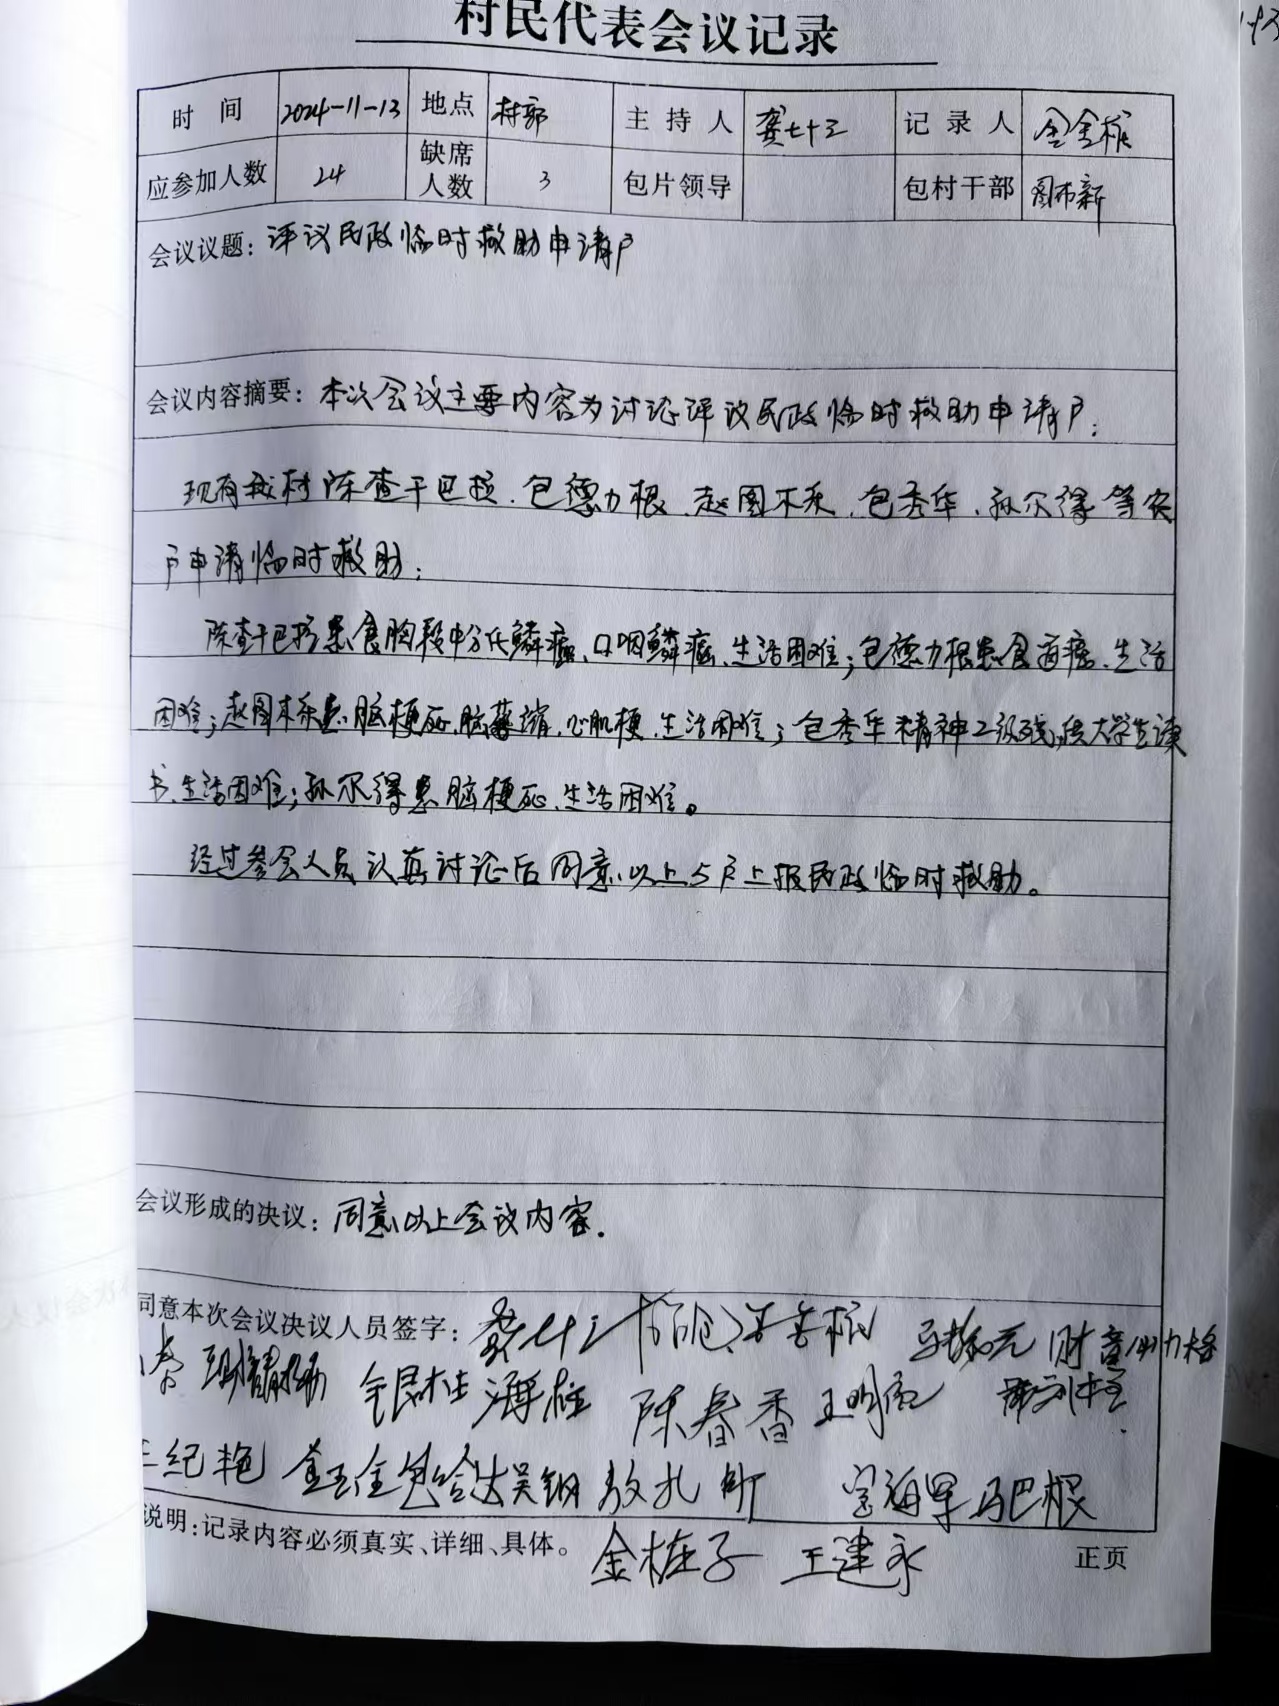 村民代表会议记录
时 间 2024-11-13 地点 村部 主 持 人 龚七十三 记 录 人
应参加人数 24 缺席人数 3 包片领导 包村干部 图布新
会议议题：评议民政临时救助申请户
会议内容摘要：本次会议主要内容为讨论评议民政临时救助申请户：
现有我村陈查干巴拉、包德力根、赵图木乐、包秀华、孙尔得等农
户申请临时救助：
陈查干巴拉患食胸段中分化鳞癌、口咽鳞癌、生活困难；包德力根患食道癌、生活
困难；赵图木乐患脑梗死、脑萎缩、心肌梗、生活困难；包秀华精神二级残，供大学生读
书、生活困难；孙尔得患脑梗死、生活困难。
经过参会人员认真讨论后同意以上5户上报民政临时救助。
会议形成的决议：同意以上会议内容.
同意本次会议决议人员签字：
陈春香 王明
王纪艳 包哈达 吴钢 敖扎 马巴根
说明：记录内容必须真实、详细、具体。 金桩子 王建永 正页